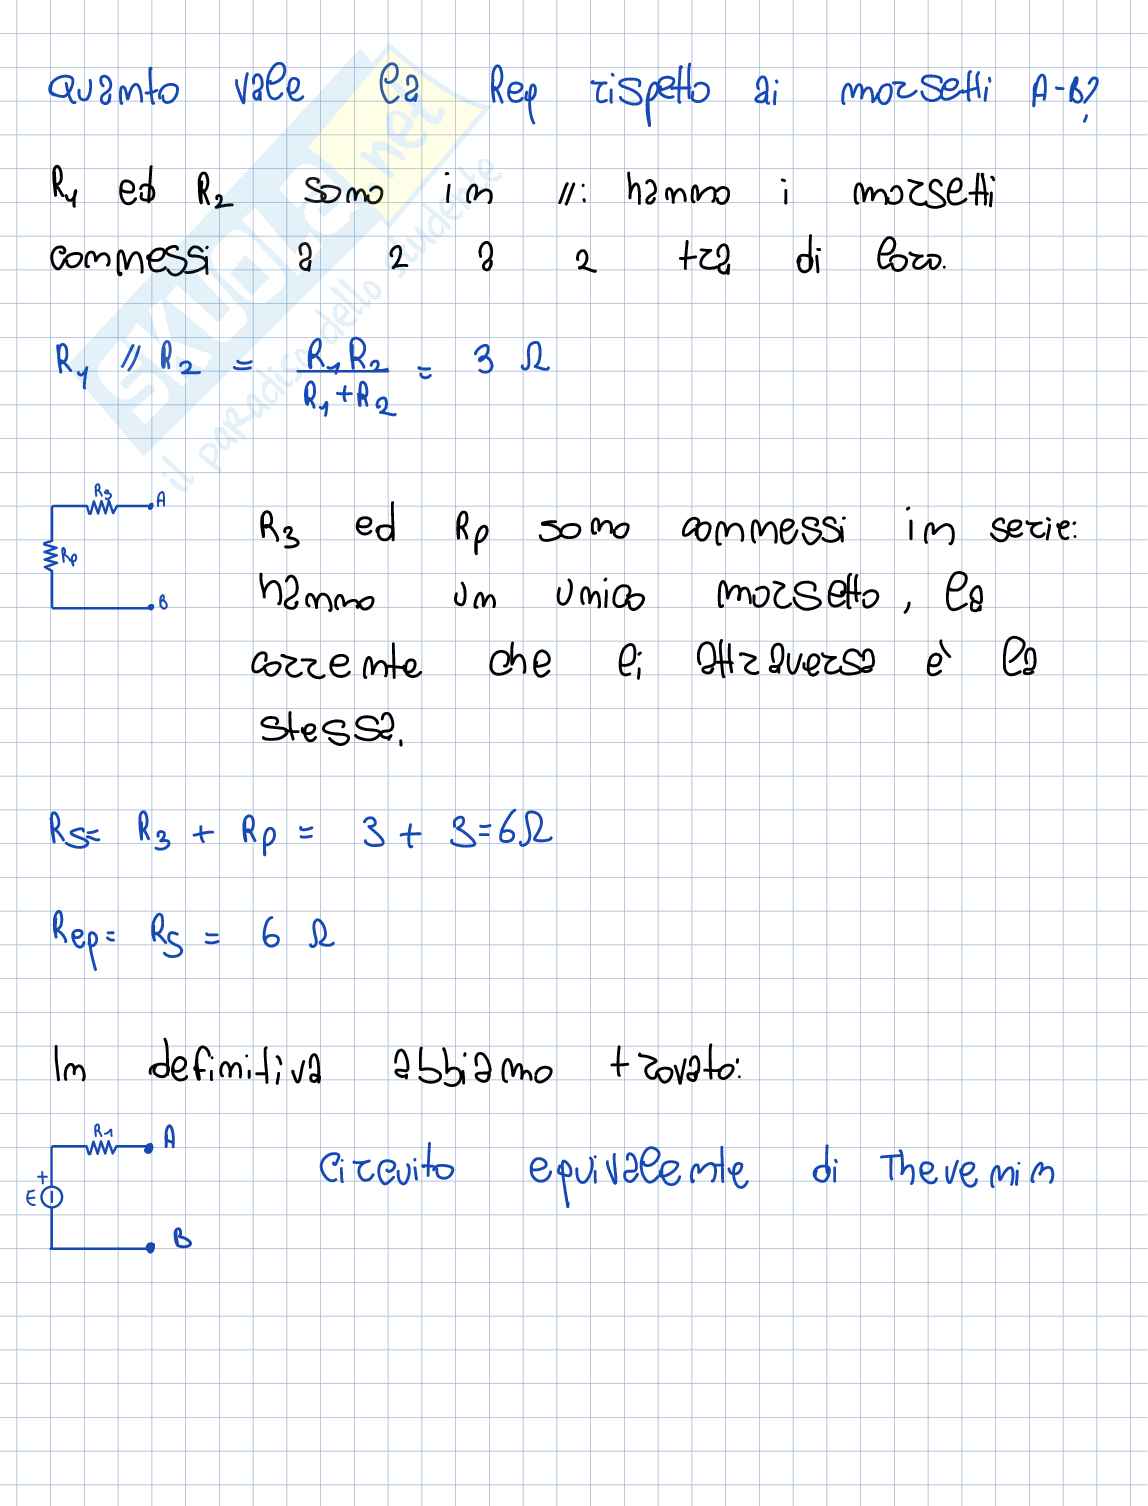 Quanto vale la Rep rispetto ai morsetti A-B?
R1 ed R2 sono in //: hanno i morsetti
connessi a 2 a 2 tra di loro.
R1 // R2 = R1 R2 / R1 + R2 = 3 Ω
R3 A
Rp
B
R3 ed Rp sono connessi in serie:
hanno un unico morsetto, la
corrente che li attraversa è la
stessa.
Rs= R3 + Rp = 3 + 3=6Ω
Rep= Rs = 6 Ω
In definitiva abbiamo trovato:
R1 A
+
E
B
Circuito equivalente di Thevenin
SKUOLA.net
il paradiso dello studente